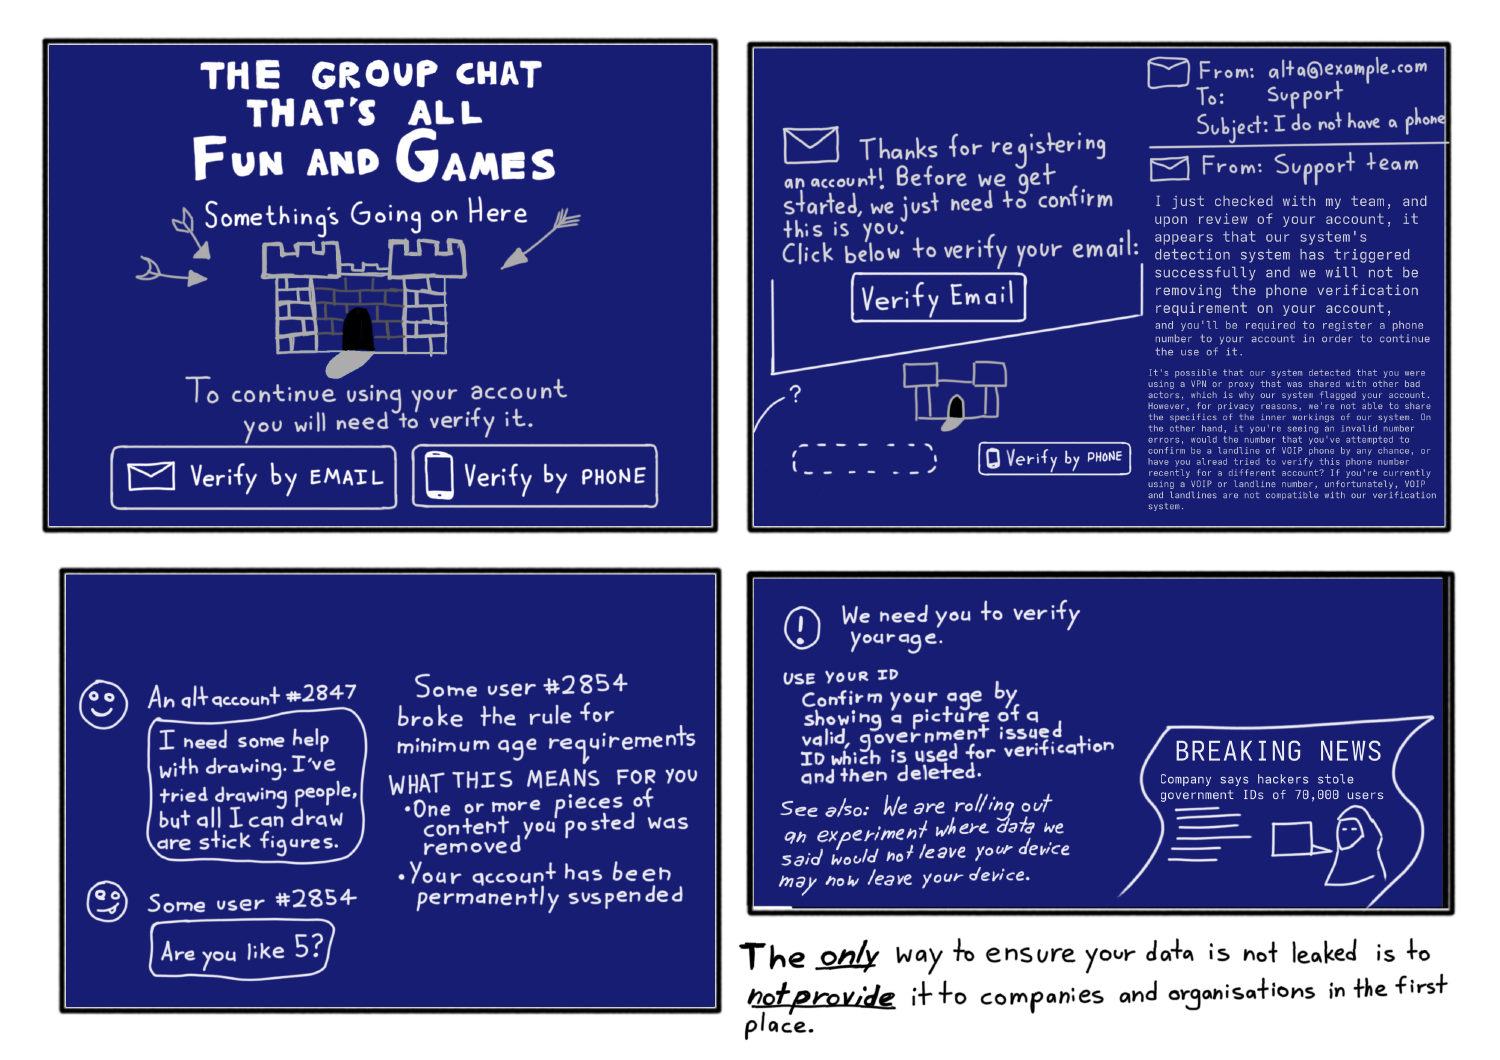 THE GROUP CHAT
THAT'S ALL
FUN AND GAMES
Something's Going on Here
To continue using your account
you will need to verify it.
Verify by EMAIL
Verify by PHONE
Thanks for registering
an account! Before we get
started, we just need to confirm
this is you.
Click below to verify your email:
Verify Email
?
Verify by PHONE
From: alta@example.com
To: Support
Subject: I do not have a phone
From: Support team
I just checked with my team, and
upon review of your account, it
appears that our system's
detection system has triggered
successfully and we will not be
removing the phone verification
requirement on your account,
and you'll be required to register a phone
number to your account in order to continue
the use of it.
It's possible that our system detected that you were
using a VPN or proxy that was shared with other bad
actors, which is why our system flagged your account.
However, for privacy reasons, we're not able to share
the specifics of the inner workings of our system. On
the other hand, it you're seeing an invalid number
errors, would the number that you've attempted to
confirm be a landline of VOIP phone by any chance, or
have you alread tried to verify this phone number
recently for a different account? If you're currently
using a VOIP or landline number, unfortunately, VOIP
and landlines are not compatible with our verification
system.
An alt account #2847
I need some help
with drawing. I've
tried drawing people,
but all I can draw
are stick figures.
Some user #2854
Are you like 5?
Some user #2854
broke the rule for
minimum age requirements
WHAT THIS MEANS FOR YOU
•One or more pieces of
content you posted was
removed
•Your account has been
permanently suspended
! We need you to verify
your age.
USE YOUR ID
Confirm your age by
showing a picture of a
valid, government issued
ID which is used for verification
and then deleted.
See also: We are rolling out
an experiment where data we
said would not leave your device
may now leave your device.
BREAKING NEWS
Company says hackers stole
government IDs of 70,000 users
The only way to ensure your data is not leaked is to
not provide it to companies and organisations in the first
place.